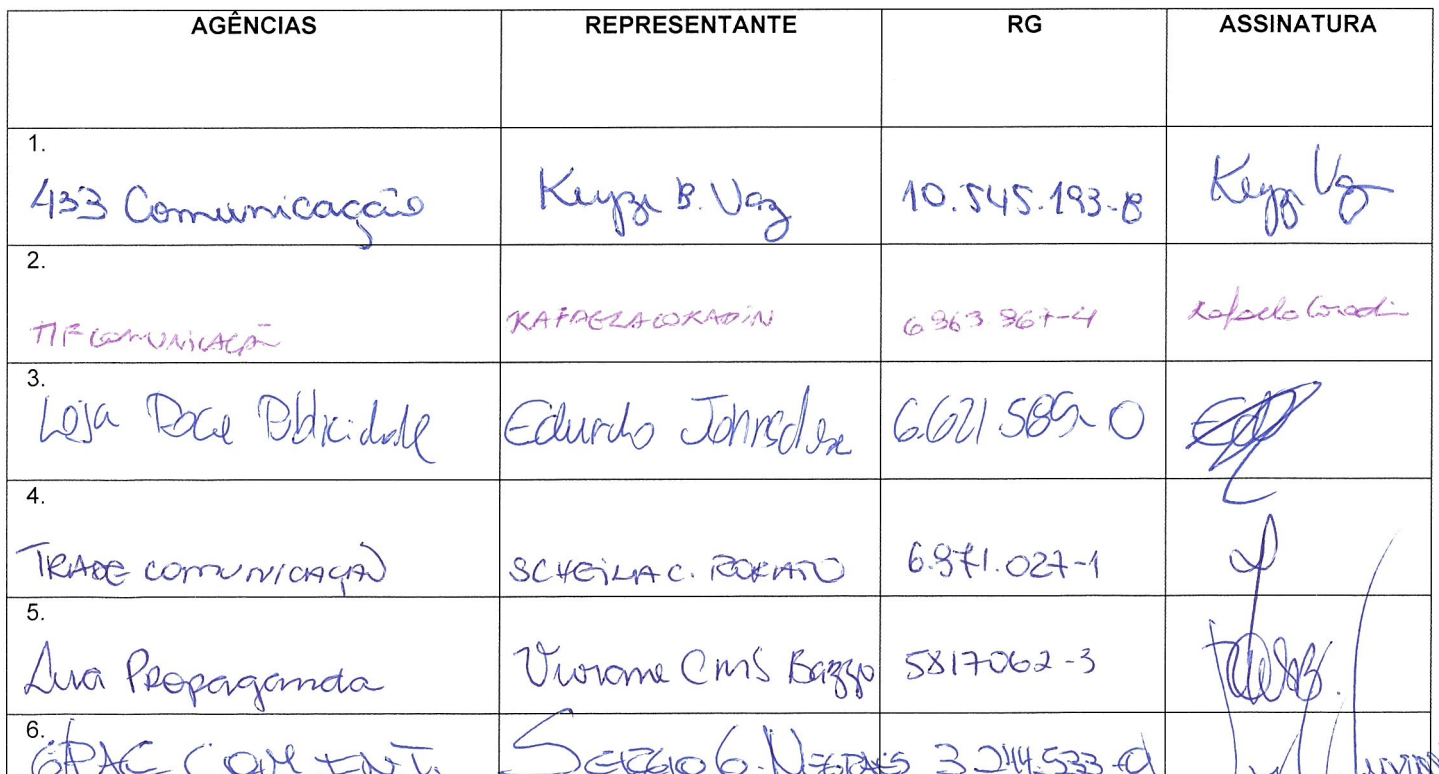 AGÊNCIAS REPRESENTANTE RG ASSINATURA
1.
433 Comunicação Keyze B. Vaz 10.545.193-8 Keyze Vaz
2.
TIF COMUNICAÇÃO RAFAELA CORADIN 6 963 967-4 Rafaela Coradin
3.
Loja Doce Publicidade Eduardo 6.621.589-0
4.
TRADE COMUNICAÇÃO SCHEILA C. 6.971.027-1
5.
Lua Propaganda Viviane Cris Bazzo 5817062-3
6.
OPAE COM ENT. SERGIO G. 3.244.533-0